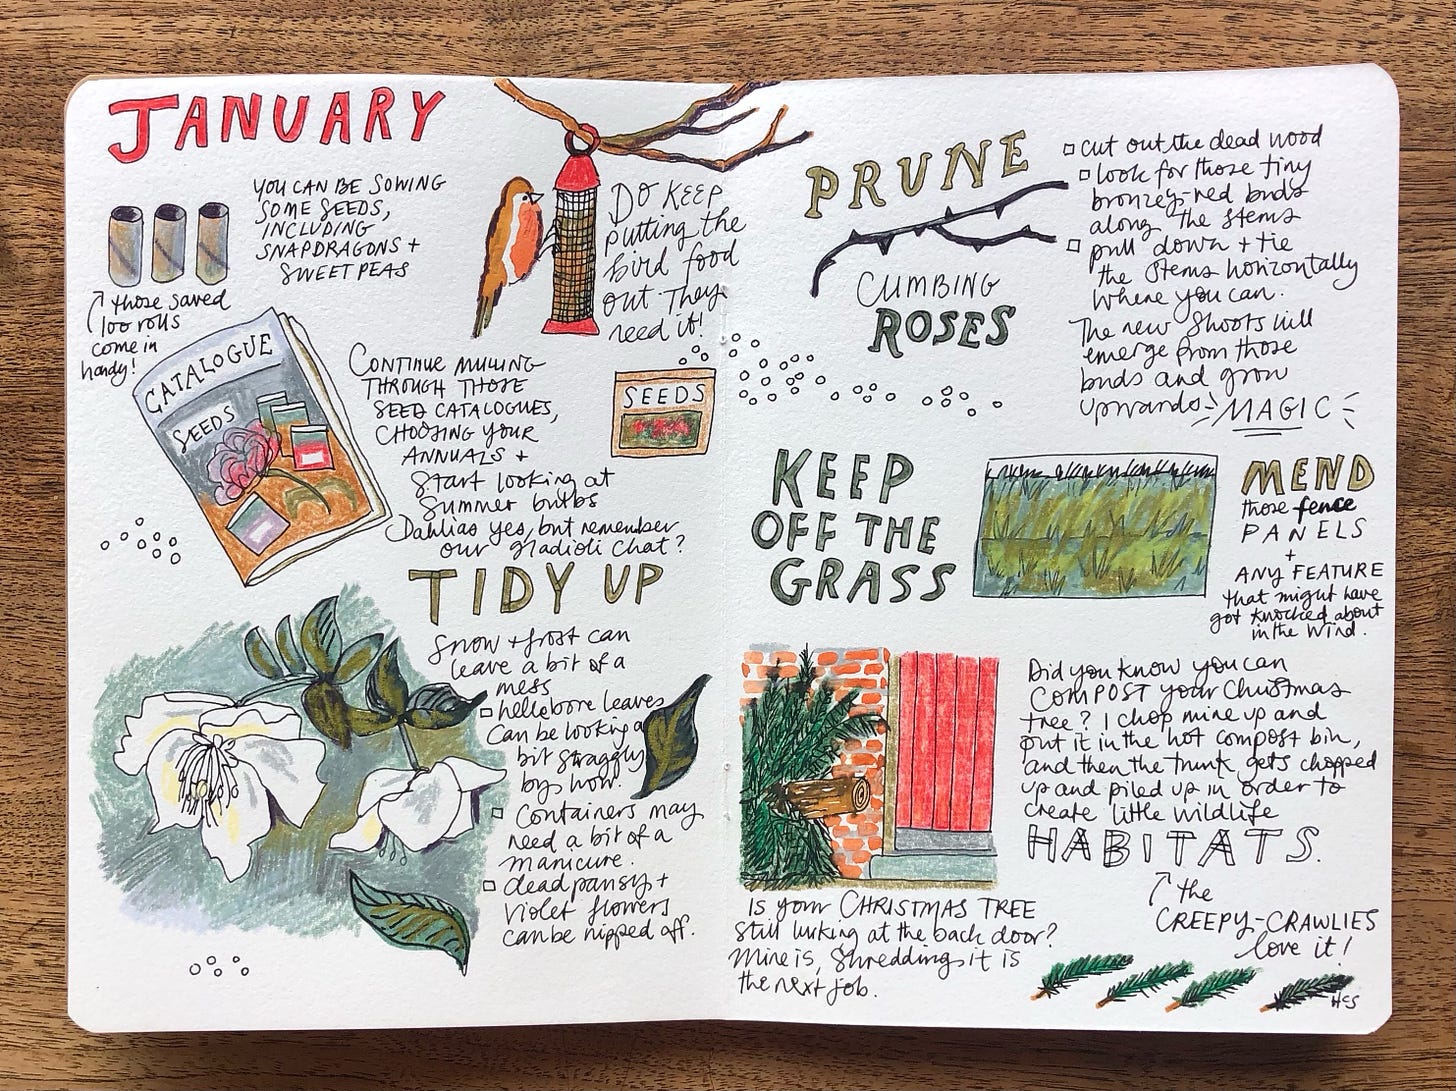 JANUARY
YOU CAN BE SOWING
SOME SEEDS,
INCLUDING
SNAPDRAGONS +
SWEET PEAS
those saved
loo rolls
come in
handy!
DO KEEP
putting the
bird food
out. They
need it!
CATALOGUE
SEEDS
CONTINUE MULLING
THROUGH THOSE
SEED CATALOGUES,
CHOOSING YOUR
ANNUALS +
Start looking at
Summer bulbs
Dahlias yes, but remember
our gladioli chat?
SEEDS
TIDY UP
Snow + frost can
leave a bit of a
mess
hellebore leaves
can be looking a
bit straggly
by now.
Containers may
need a bit of a
manicure.
dead pansy +
violet flowers
can be nipped off.
PRUNE
CLIMBING
ROSES
cut out the dead wood
look for those tiny
bronzey-red buds
along the stems
pull down + tie
the stems horizontally
where you can.
The new shoots will
emerge from those
buds and grow
upwards MAGIC
KEEP
OFF THE
GRASS
MEND
those fence
PANELS
+
ANY FEATURE
that might have
got knocked about
in the wind.
Did you know you can
COMPOST your Christmas
tree? I chop mine up and
put it in the hot compost bin,
and then the trunk gets chopped
up and piled up in order to
create little wildlife
HABITATS.
the
CREEPY-CRAWLIES
love it!
Is your CHRISTMAS TREE
still lurking at the back door?
Mine is, shredding it is
the next job.
HCS